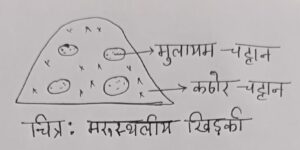 मुलायम-चट्टान
कठोर-चट्टान
चित्र: मरुस्थलीय खिड़की